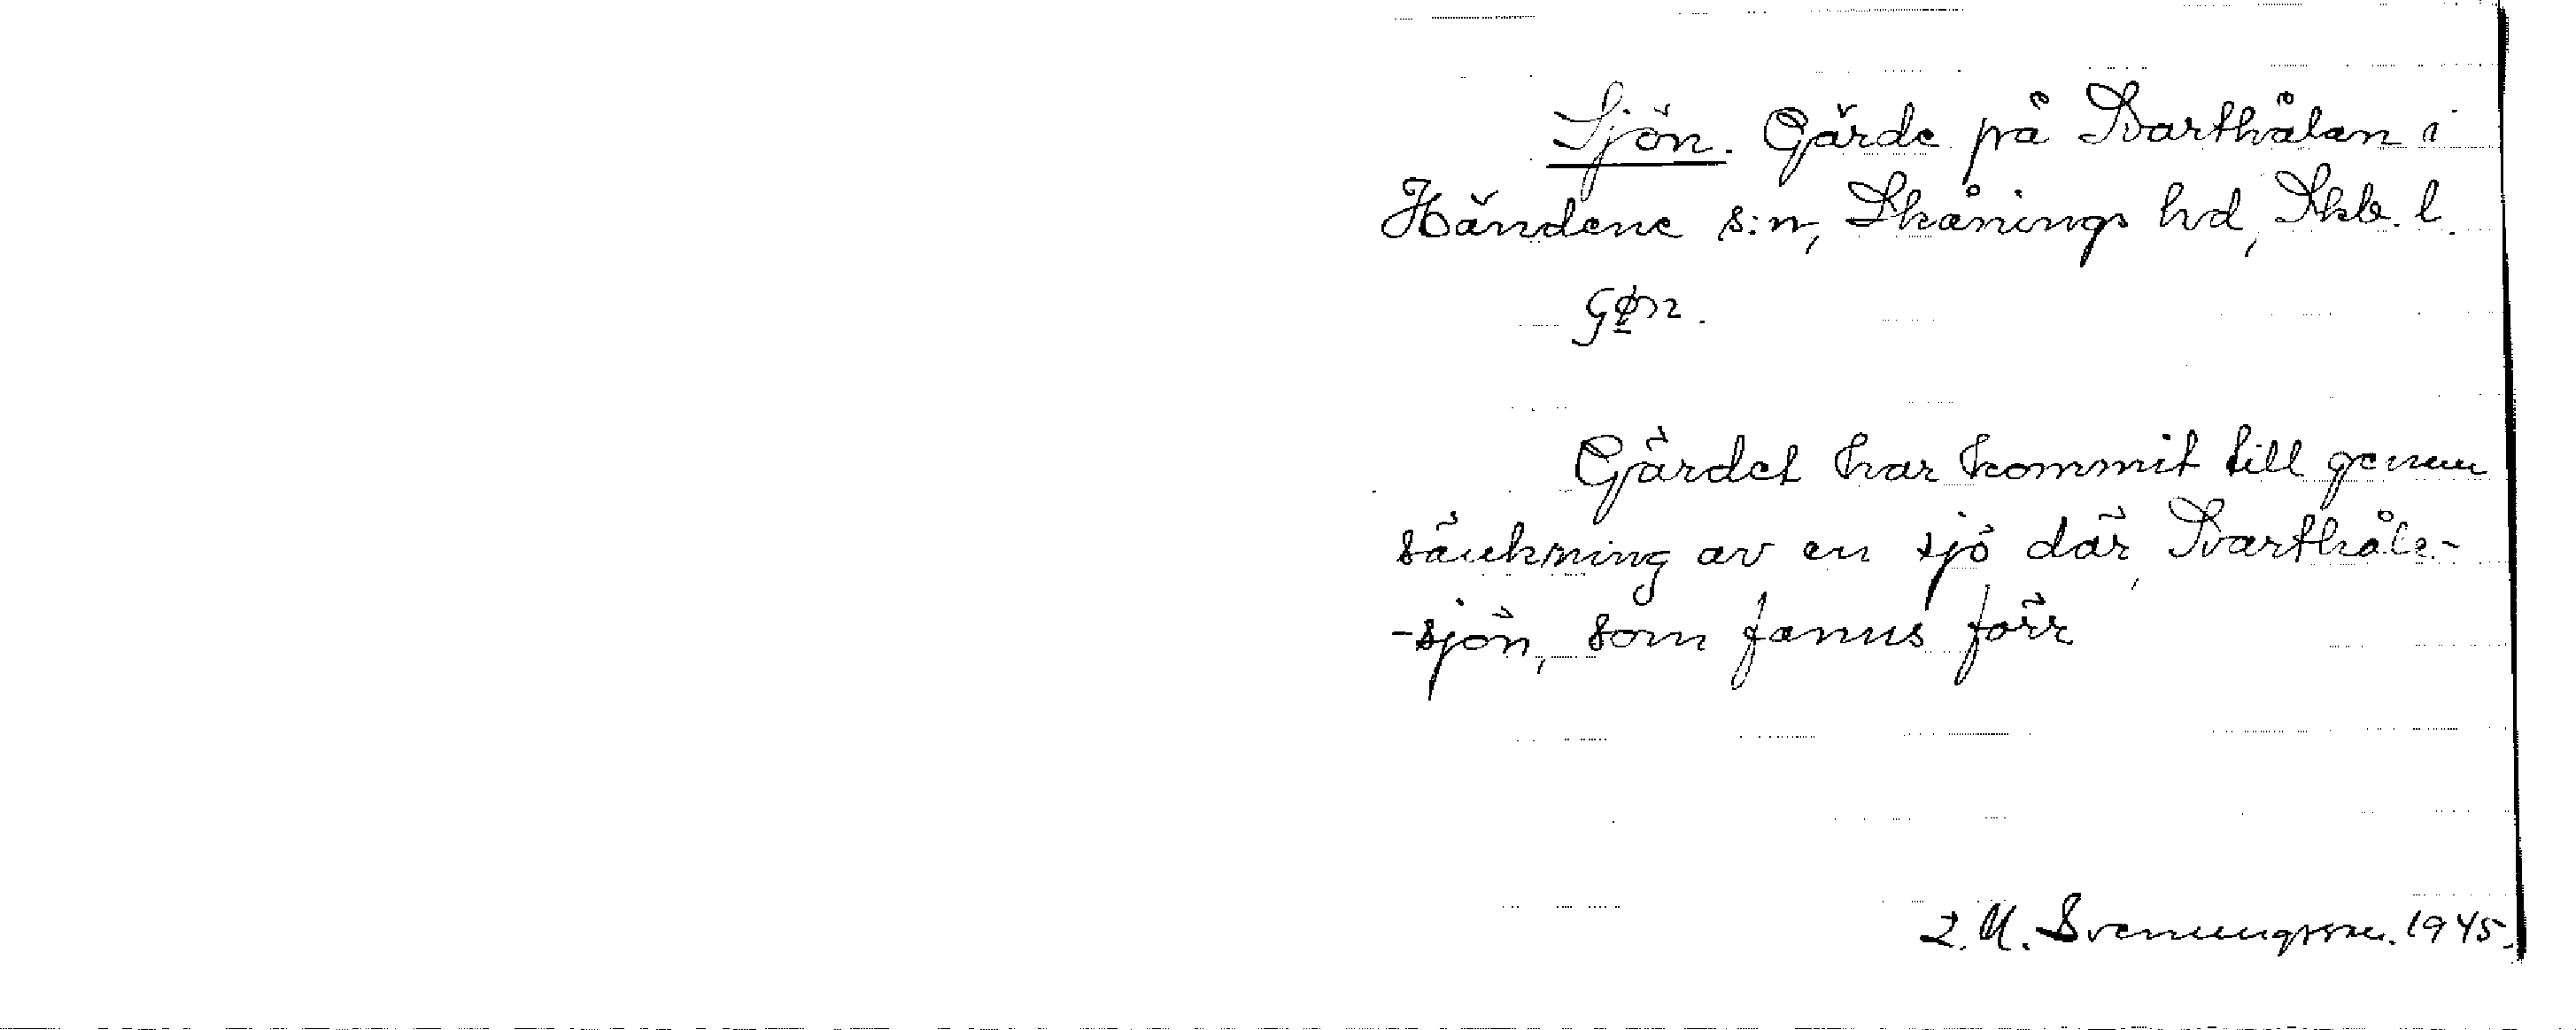 Sjön. Gärde på Svarthålan i
Händene s:n, Skånings hd, Skb. l.
Gärdet har kommit till genom
sänkning av en sjö där, Svarthåle-
-sjön, som fanns förr
Svenungsson. 1945.